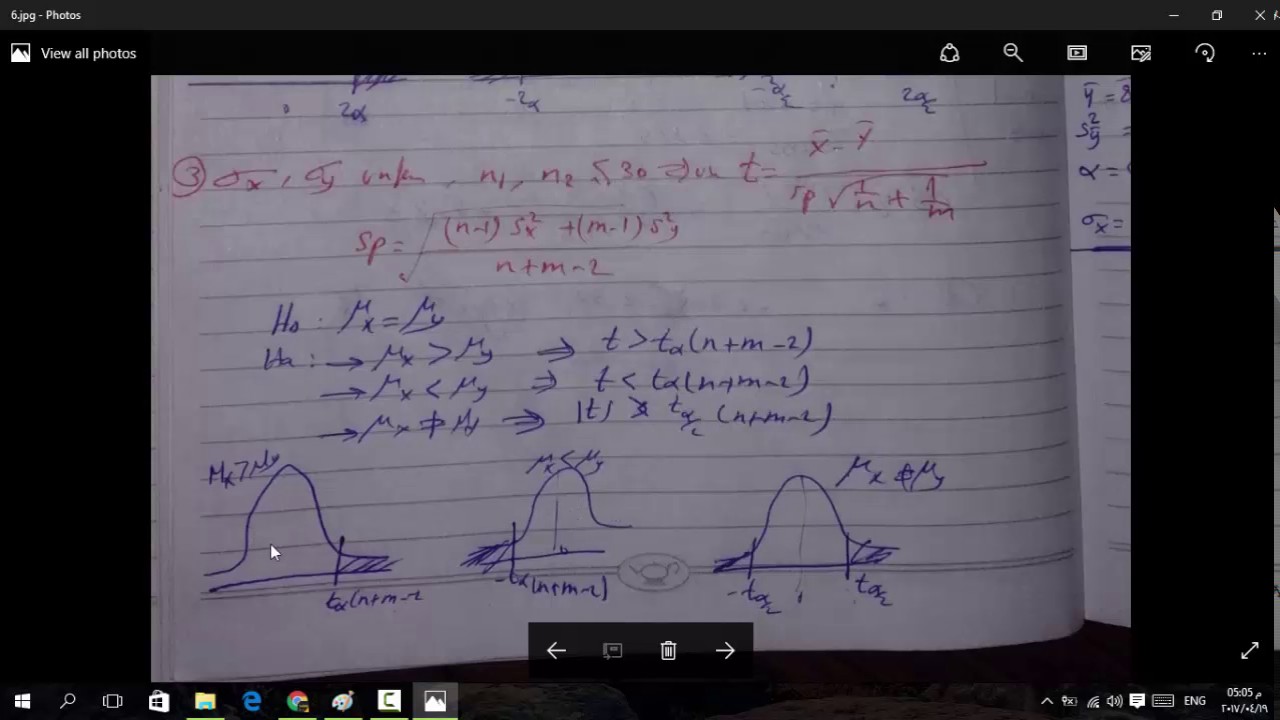 6.jpg - Photos
View all photos
2α -2α -2α/2 2α/2
ȳ =
S²y =
α =
σx =
③ σx, σy unkn, n1, n2 ≤ 30 ⇒ t = x̄ - ȳ / Sp √ 1/n + 1/m
Sp = √ (n-1) S²x + (m-1) S²y / n+m-2
Ho : μx = μy
Ha : → μx > μy ⇒ t > tα (n+m-2)
→ μx < μy ⇒ t < tα (n+m-2)
→ μx ≠ μy ⇒ |t| > tα/2 (n+m-2)
μx > μy μx < μy μx ≠ μy
tα (n+m-2 -tα (n+m-2) -tα/2 tα/2
ENG
05:05 م
٢٠١٧/٠٤/١٩